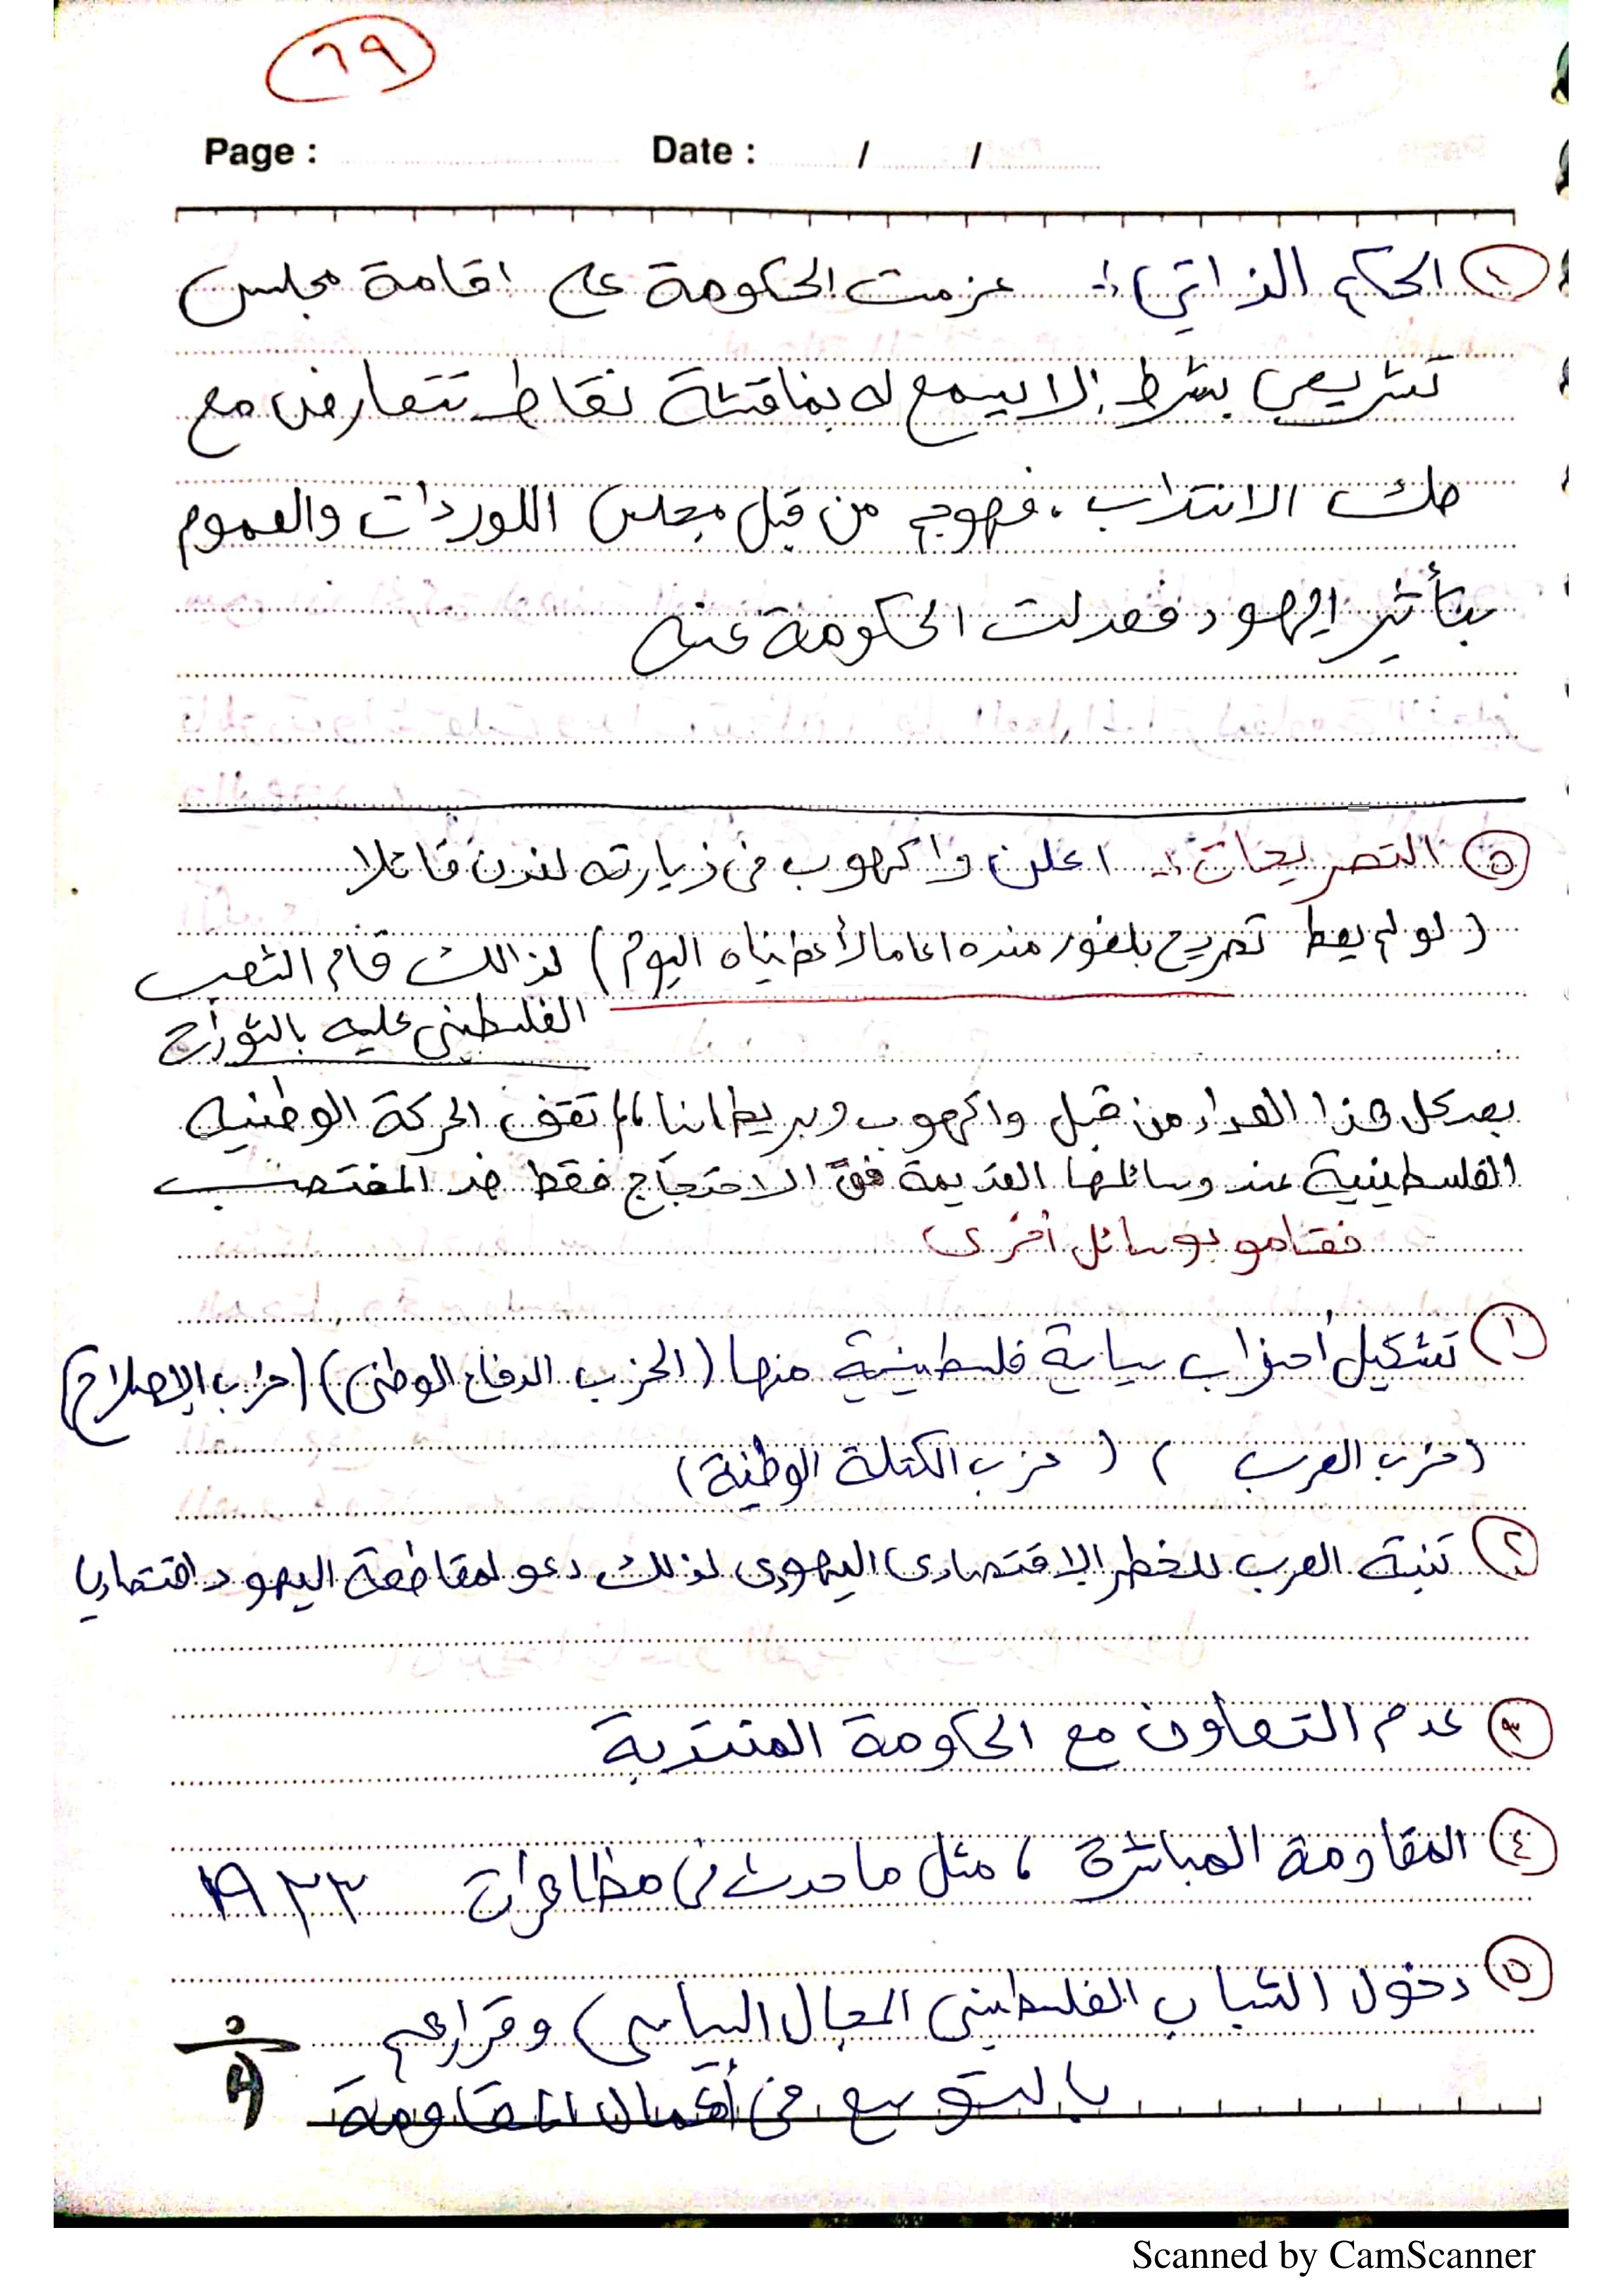 ٦٩
Page : Date : / /
٤ الحكم الذاتي :- عزمت الحكومة على اقامة مجلس
تشريعي بشرط إلا يسمح له بمناقشة نقاط تتعارض مع
صك الانتداب . فهوجم من قبل مجلس اللوردات والعموم
بتأثير اليهود فعدلت الحكومة عنه
٥ التصريحات :- اعلن واكهوب في زيارته لندن قائلا
( لو لم يعط تصريح بلفور منذ ١٥ عاما لأعطيناه اليوم ) لذالك قام الشعب
الفلسطيني عليه بالثورات
بعد كل هذا العداء من قبل واكهوب وبريطانيا ، لم تقف الحركة الوطنيه
الفلسطينية عند وسائلها القديمة في الاحتجاج فقط ضد المغتصب
فقامو بوسائل أخرى
١ تشكيل أحزاب سياسية فلسطينية منها ( الحزب الدفاع الوطني ) ( حزب الإصلاح )
( حزب العرب ) ( حزب الكتلة الوطنية )
٢ تنبة العرب للخطر الاقتصادي اليهودي لذلك دعو لمقاطعة اليهود اقتصاديا
٣ عدم التعاون مع الحكومة المنتدبة
٤ المقاومة المباشرة ، مثل ما حدث في مظاهرات ١٩٣٣
٥ دخول الشباب الفلسطيني المجال السياسي وقرارهم
بالتوسع في أعمال المقاومة
Scanned by CamScanner